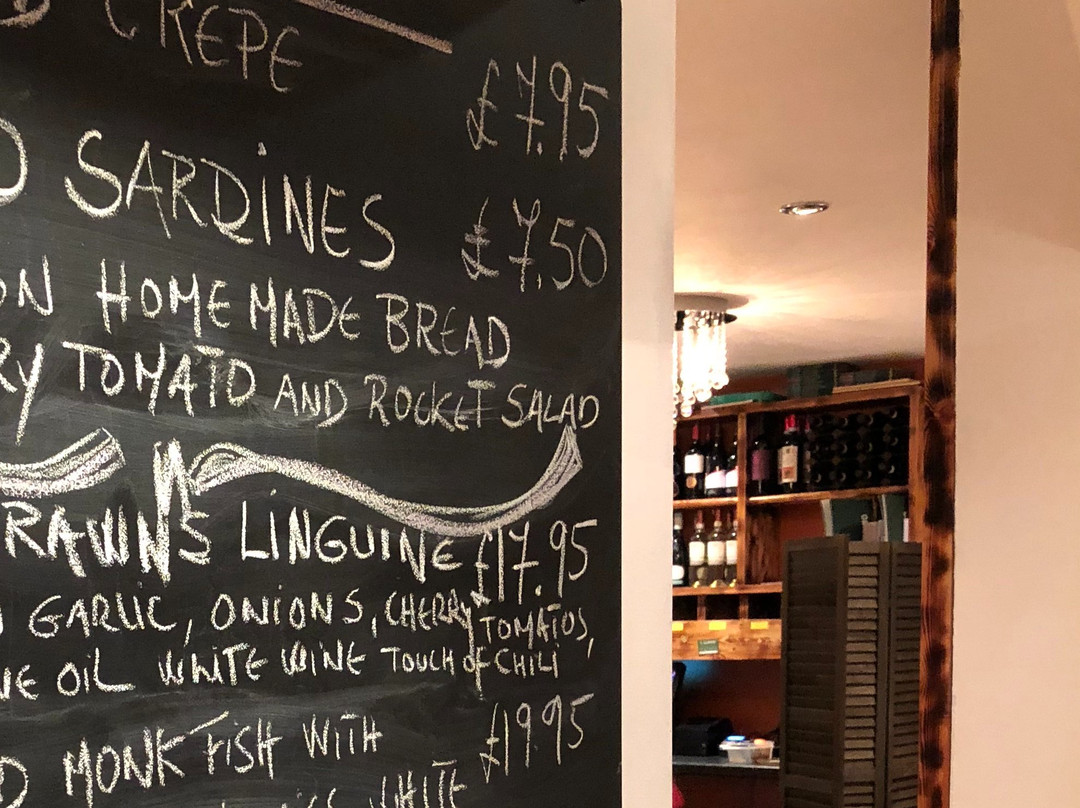 CREPE
£7.95
SARDINES
£7.50
ON HOMEMADE BREAD
RY TOMATO AND ROCKET SALAD
RAWNS LINGUINE £17.95
GARLIC, ONIONS, CHERRY TOMATOS,
VE OIL WHITE WINE TOUCH OF CHILI
D MONK FISH WITH £19.95
WHITE